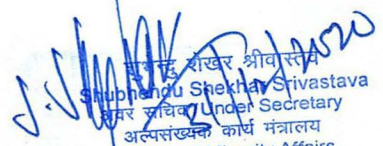 शुभेन्दु शेखर श्रीवास्तव
Shubhendu Shekhar Srivastava
अवर सचिव/Under Secretary
अल्पसंख्यक कार्य मंत्रालय
Affairs